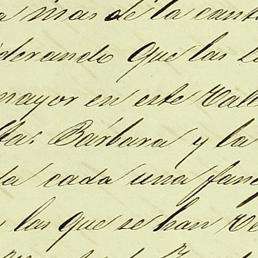 a mas de la cant
iderando que las L
mayor en este Vall
ta. Bárbara y la
da cada una fan
las que se han ve